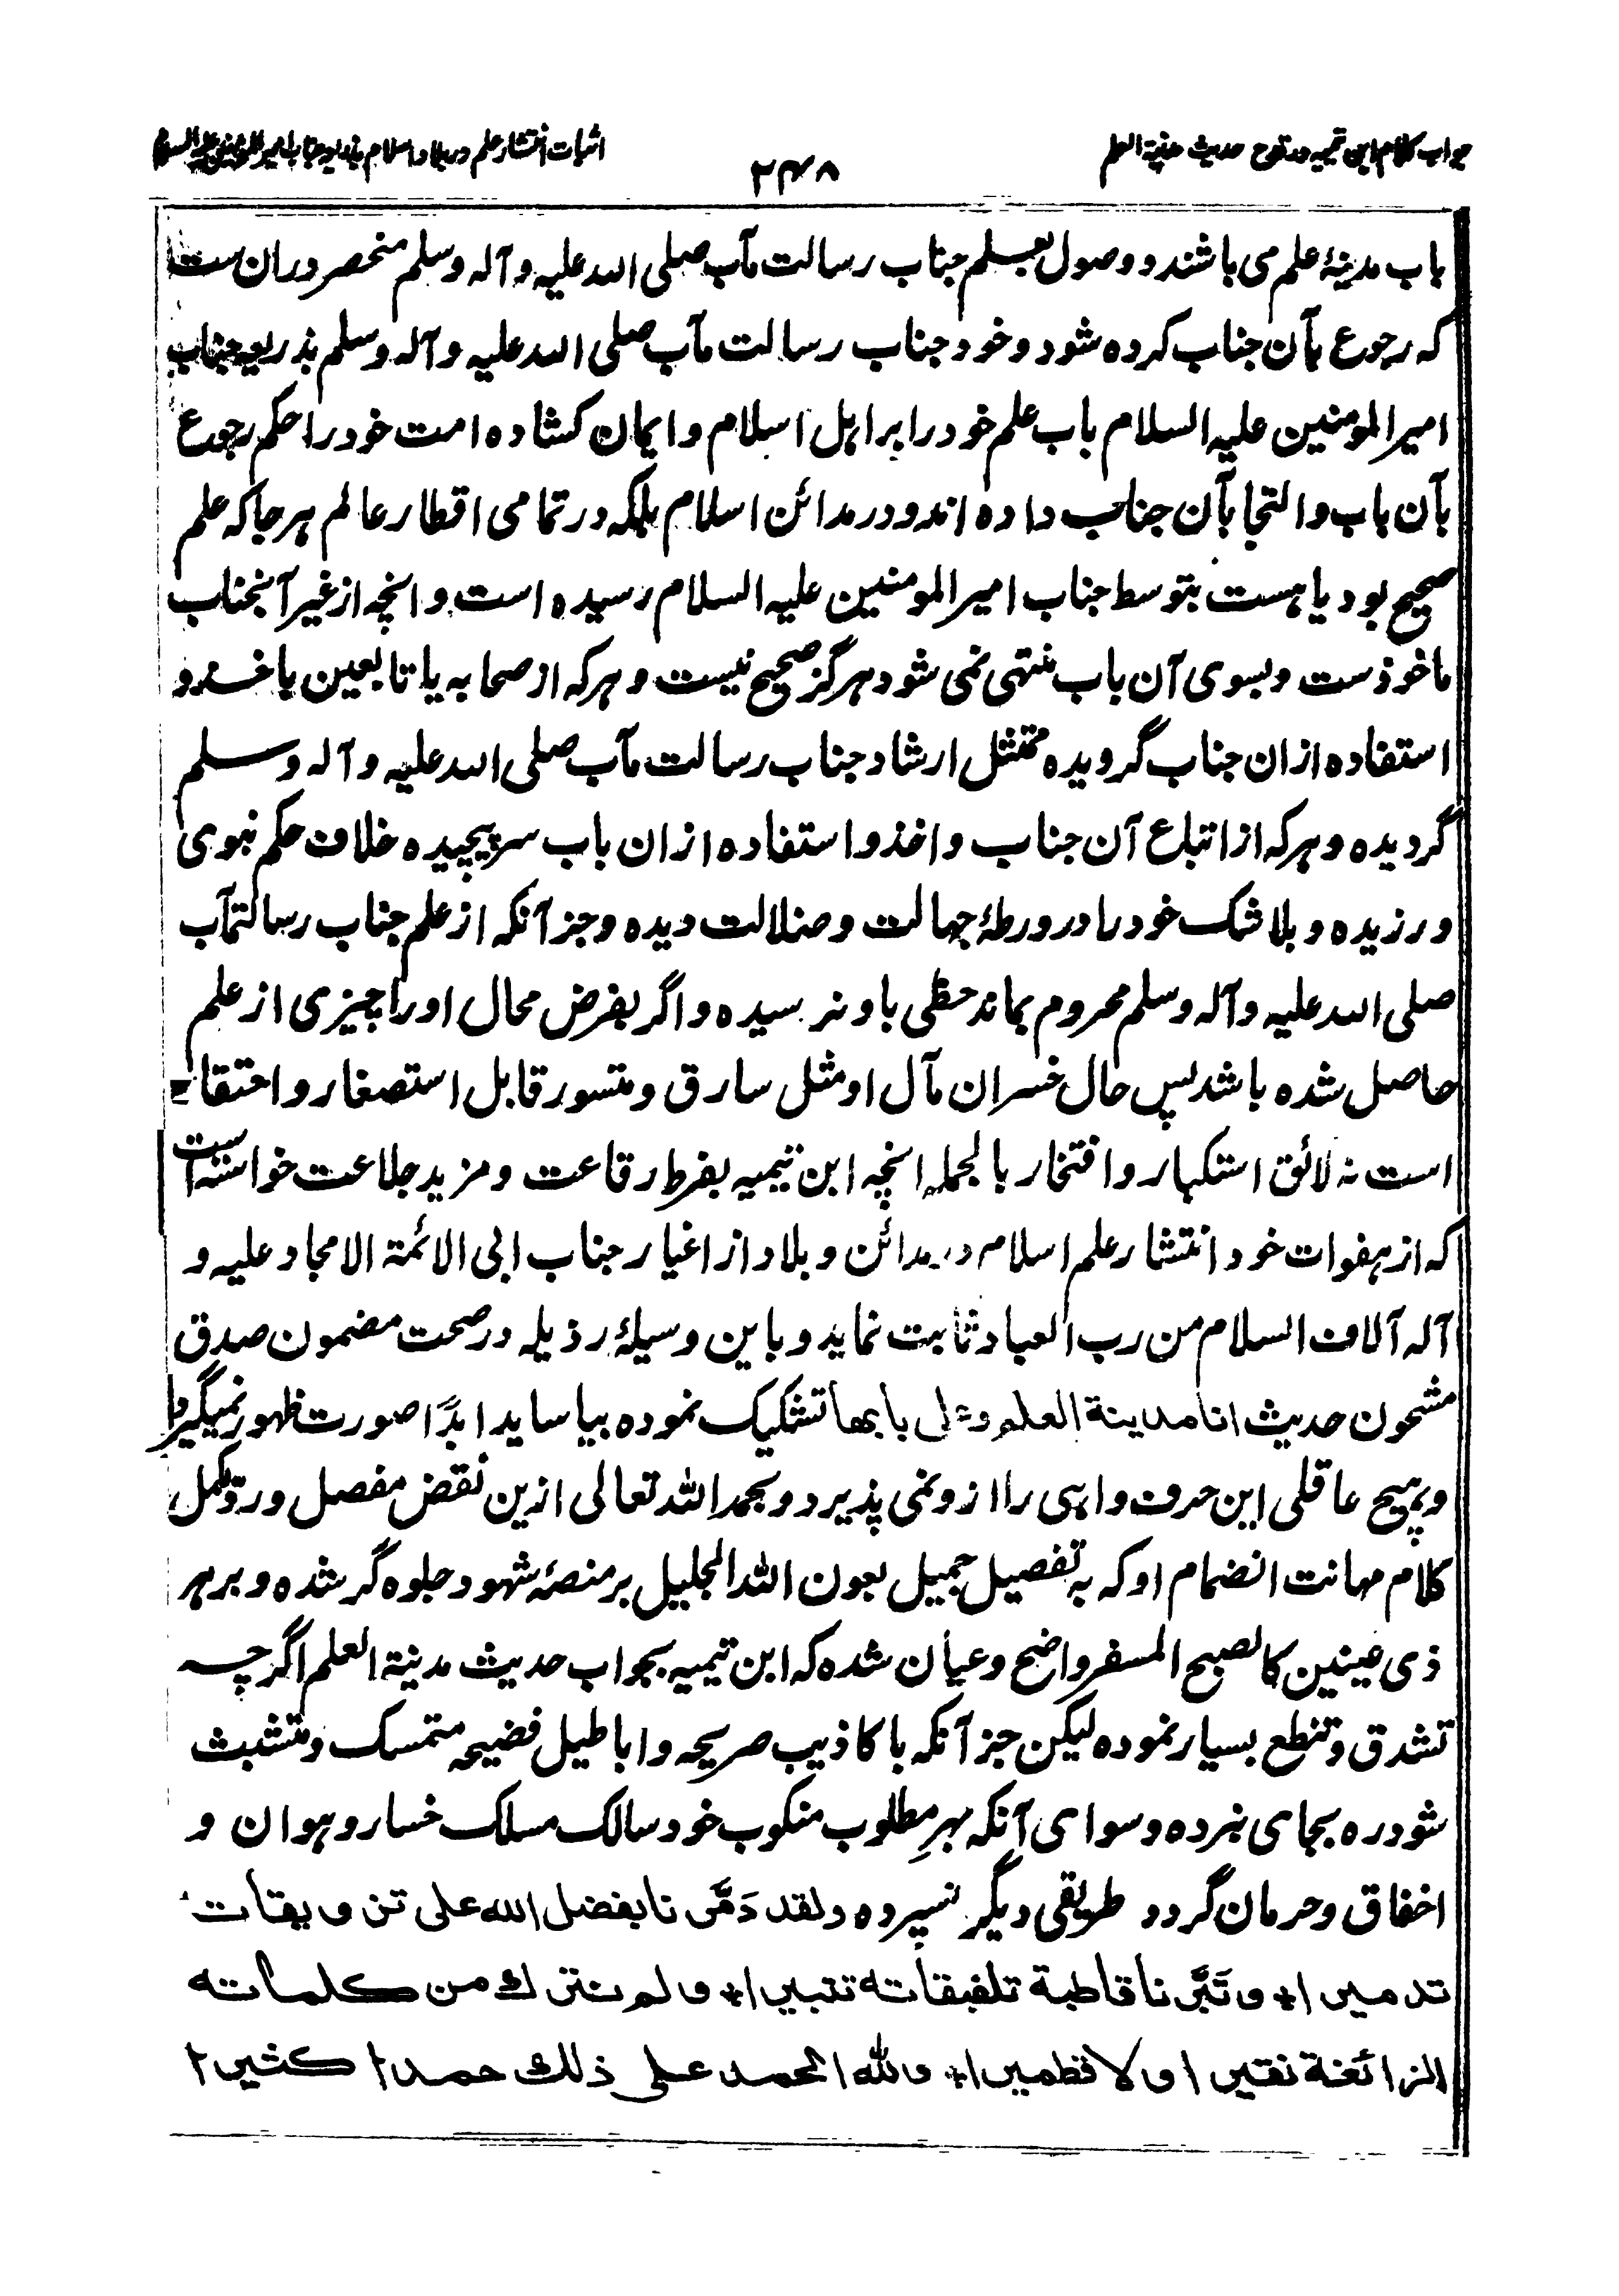 جواب کلام ابن تیمیه در قدح حدیث مدینة العلم
۲۴۸
اثبات انتشار علم در بلاد اسلام بذریعه جناب امیر المومنین علیه السلام
باب مدینهٔ علم می باشند و وصول بعلم جناب رسالت مآب صلی الله علیه وآله وسلم منحصر دران ست
که رجوع بآن جناب کرده شود و خود جناب رسالت مآب صلی الله علیه وآله وسلم بذریعه جناب
امیر المومنین علیه السلام باب علم خود را بر اهل اسلام و ایمان کشاده امت خود را حکم رجوع
بآن باب و التجا بآن جناب داده اند و در مدائن اسلام بلکه در تمامی اقطار عالم هر جا که علم
صحیح بود یا هست بتوسط جناب امیر المومنین علیه السلام رسیده است و انچه از غیر آنجناب
ماخوذ ست و بسوی آن باب منتهی نمی شود هرگز صحیح نیست و هر که از صحابه یا تابعین باخذ و
استفاده ازان جناب گرویده ممتثل ارشاد جناب رسالت مآب صلی الله علیه وآله وسلم
گردیده و هر که از اتباع آن جناب و اخذ و استفاده ازان باب سر پیچیده خلاف حکم نبوی
ورزیده و بلا شک خود را در ورطهٔ جهالت و ضلالت دیده و جز آنکه از علم جناب رسالتمآب
صلی الله علیه وآله وسلم محروم بماند حظی باو نرسیده و اگر بفرض محال او را چیزی از علم
حاصل شده باشد پس حال خسران مآل او مثل سارق و متسور قابل استصغار و احتقار
است نه لائق استکبار و افتخار بالجمله انچه ابن تیمیه بفرط رقاعت و مزید جلاعت خواسته است
که از هفوات خود انتشار علم اسلام در مدائن و بلاد از اغیار جناب ابی الائمة الامجاد علیه و
آله آلاف السلام من رب العباد ثابت نماید و باین وسیلهٔ رذیله در صحت مضمون صدق
مشحون حدیث انا مدینة العلم وعلی بابها تشکیک نموده بیاساید ابدًا صورت ظهور نمیگیرد
و هیچ عاقلی این حرف واهی را از و نمی پذیرد و بحمد الله تعالی ازین نقض مفصل و رد مکمل
کلام مهانت انضمام او که به تفصیل جمیل بعون الله الجلیل بر منصهٔ شهود جلوه گر شده و بر هر
ذی عینین کالصبح المسفر واضح و عیان شده که ابن تیمیه بجواب حدیث مدینة العلم اگرچه
تشدق و تنطع بسیار نموده لیکن جز آنکه باکاذیب صریحه و اباطیل فضیحه متمسک و متشبث
شود ره بجای نبرده و سوای آنکه بهرِ مطلوب منکوب خود سالک مسلک خسار و هوان و
اخفاق و حرمان گردد طریقی دیگر نسپرده ولقد دَمَّرنا بفضل الله علی تزویقاته
تدمیرا * و تَبَّرنا قاطبة تلفیقاته تتبیرا * و لم نترك من كلماته
الزائغة نقیرا و لا قطمیرا * و لله الحمد علی ذلك حمدا كثیرا